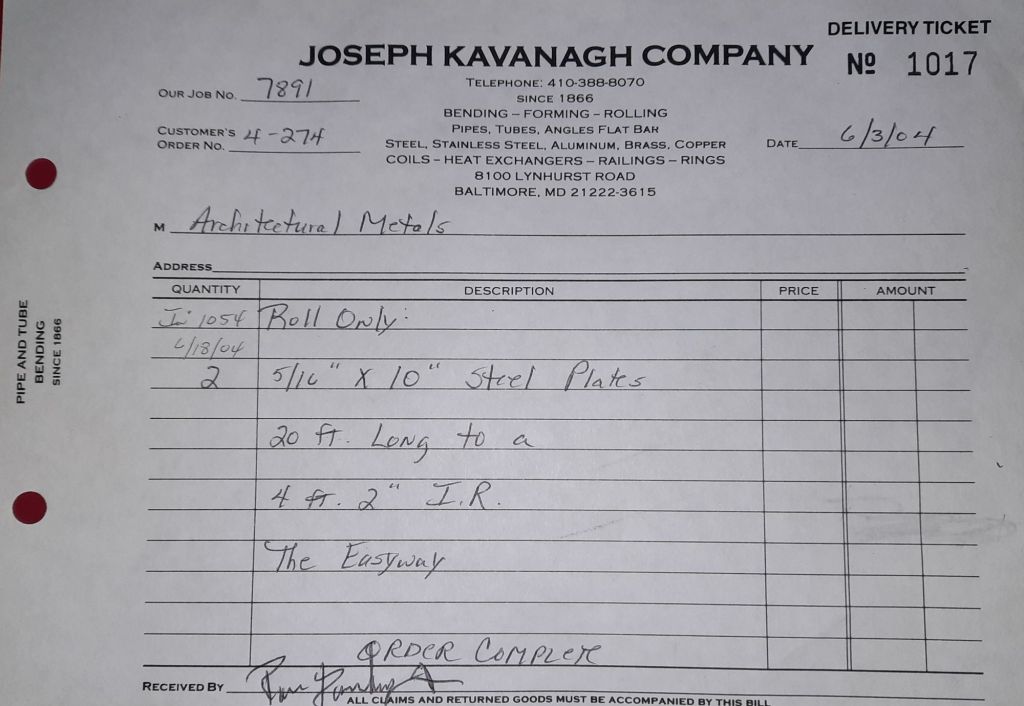 DELIVERY TICKET
JOSEPH KAVANAGH COMPANY
Nº 1017
TELEPHONE: 410-388-8070
OUR JOB NO. 7891
SINCE 1866
BENDING – FORMING – ROLLING
PIPES, TUBES, ANGLES FLAT BAR
CUSTOMER'S ORDER NO. 4-274
STEEL, STAINLESS STEEL, ALUMINUM, BRASS, COPPER
DATE 6/3/04
COILS – HEAT EXCHANGERS – RAILINGS – RINGS
8100 LYNHURST ROAD
BALTIMORE, MD 21222-3615
M Architectural Metals
ADDRESS
QUANTITY DESCRIPTION PRICE AMOUNT
1054 Roll Only:
6/18/04
2 5/16" X 10" Steel Plates
20 ft. Long to a
4 ft. 2" I.R.
The Easyway
ORDER COMPLETE
RECEIVED BY
ALL CLAIMS AND RETURNED GOODS MUST BE ACCOMPANIED BY THIS BILL
PIPE AND TUBE
BENDING
SINCE 1866